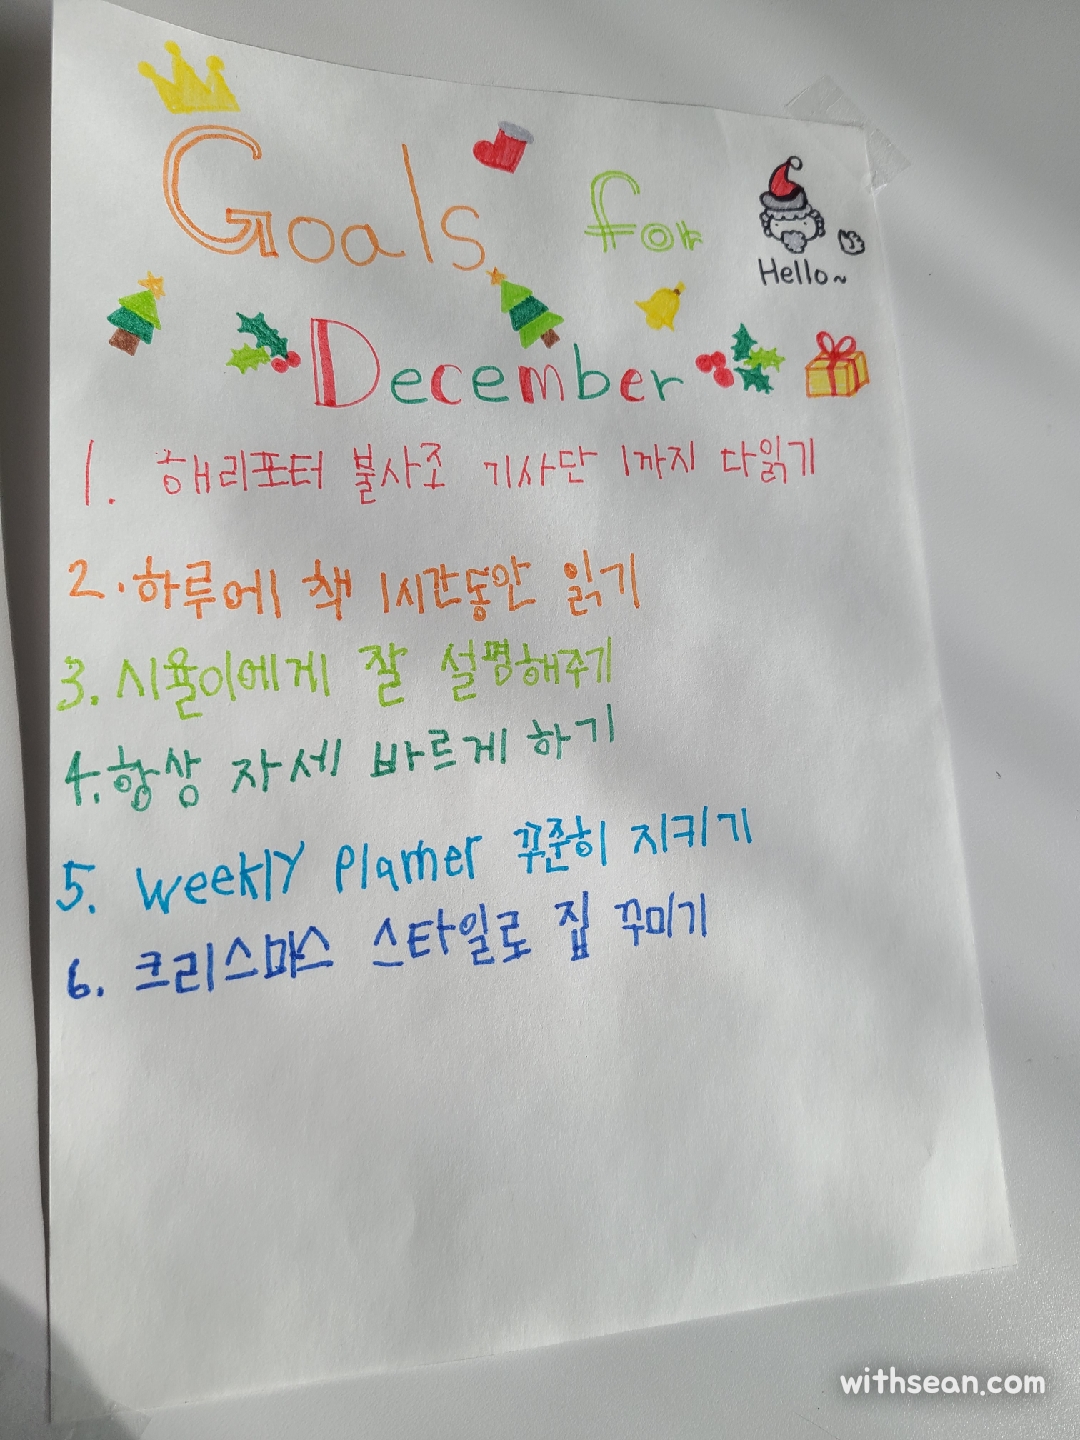 Goals for
Hello~
December
1. 해리포터 불사조 기사단 1까지 다읽기
2. 하루에 책 1시간동안 읽기
3. 시율이에게 잘 설명해주기
4. 항상 자세 바르게 하기
5. Weekly Planner 꾸준히 지키기
6. 크리스마스 스타일로 집 꾸미기
withsean.com